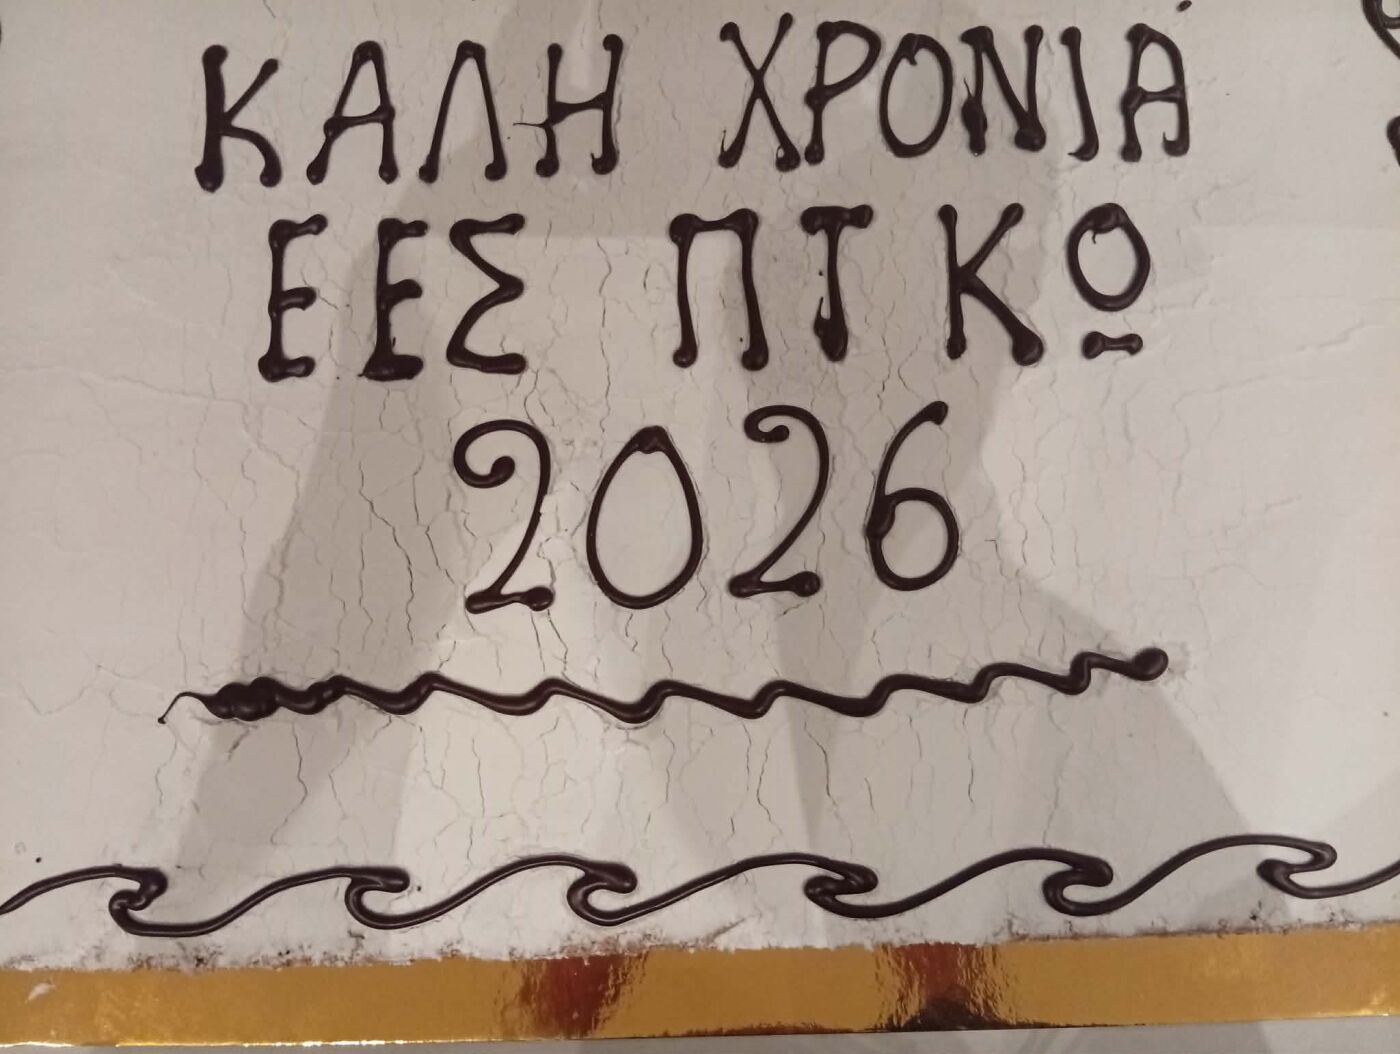 ΚΑΛΗ ΧΡΟΝΙΑ
ΕΕΣ ΠΤ ΚΩ
2026